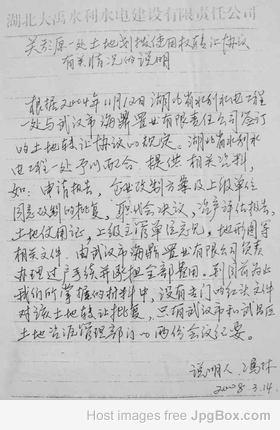 湖北大禹水利水电建设有限责任公司
关于原一处土地划拨使用权转让协议
有关情况的说明
根据2004年11月12日湖北省水利水电工程
一处与武汉市海鼎置业有限责任公司签订
的土地转让协议的规定。湖北省水利水
电工程一处予以配合提供相关资料,
如:申请报告,企业改制方案及上级单位
同意改制的批复,职代会决议,资产评估报告,
土地使用证,上级主管单位意见,地形图等
相关文件。由武汉市海鼎置业有限公司负责
办理过户手续并承担全部费用。到目前为止
我们所掌握的材料中,没有专门的红头文件
对该土地转让批复,只有武汉市和武昌区
土地管理部门的两份会议纪要。
说明人:冯林
2008.3.14.
Host images free at JpgBox.com